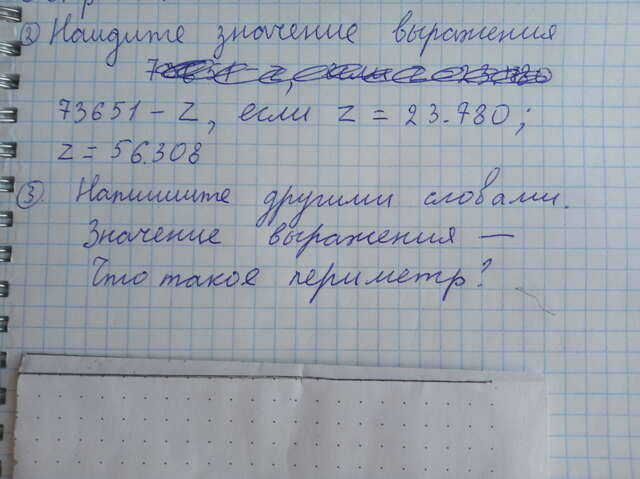 ② Найдите значение выражения
73651 – z, если z = 23.780;
z = 56.308
③ Напишите другими словами.
Значение выражения —
Что такое периметр?